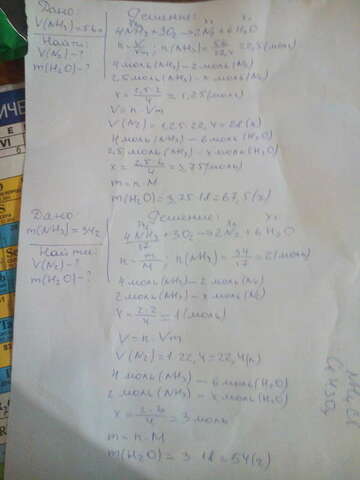 Дано:
V(NH₃)=56л
Найти:
V(N₂)-?
m(H₂O)-?
Решение:
4NH₃+3O₂→2N₂+6H₂O
n(NH₃)=56/22,4=2,5(моль)
4 моль(NH₃)-2 моль(N₂)
2,5 моль(NH₃)-x моль(N₂)
x=2,5·2/4=1,25(моль)
V=n·Vm
V(N₂)=1,25·22,4=28(л)
4 моль(NH₃)-6 моль(H₂O)
2,5 моль(NH₃)-x моль(H₂O)
x=2,5·6/4=3,75(моль)
m=n·M
m(H₂O)=3,75·18=67,5(г)
Дано:
m(NH₃)=34г
Найти:
V(N₂)-?
m(H₂O)-?
Решение:
4NH₃+3O₂→2N₂+6H₂O
17
n=m/M; n(NH₃)=34/17=2(моль)
4 моль(NH₃)-2 моль(N₂)
2 моль(NH₃)-x моль(N₂)
x=2·2/4=1(моль)
V=n·Vm
V(N₂)=1·22,4=22,4(л)
4 моль(NH₃)-6 моль(H₂O)
2 моль(NH₃)-x моль(H₂O)
x=2·6/4=3 моль
m=n·M
m(H₂O)=3·18=54(г)